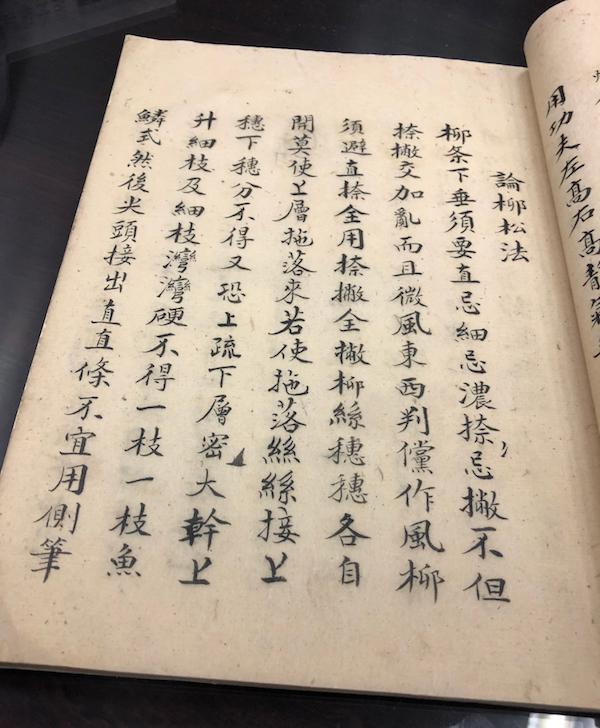 用功夫左高右高靜氣
論柳松法
柳条下垂須要直忌細忌濃捺忌撇不但
捺撇交加亂而且微風東西判儻作風柳
須避直捺全用捺撇全撇柳絲穗穗各自
開莫使上層拖落來若使拖落絲絲接上
穗下穗分不得又恐上疏下層密大幹上
升細枝及細枝灣灣硬不得一枝一枝魚
鱗式然後尖頭接出直直條不宜用側筆